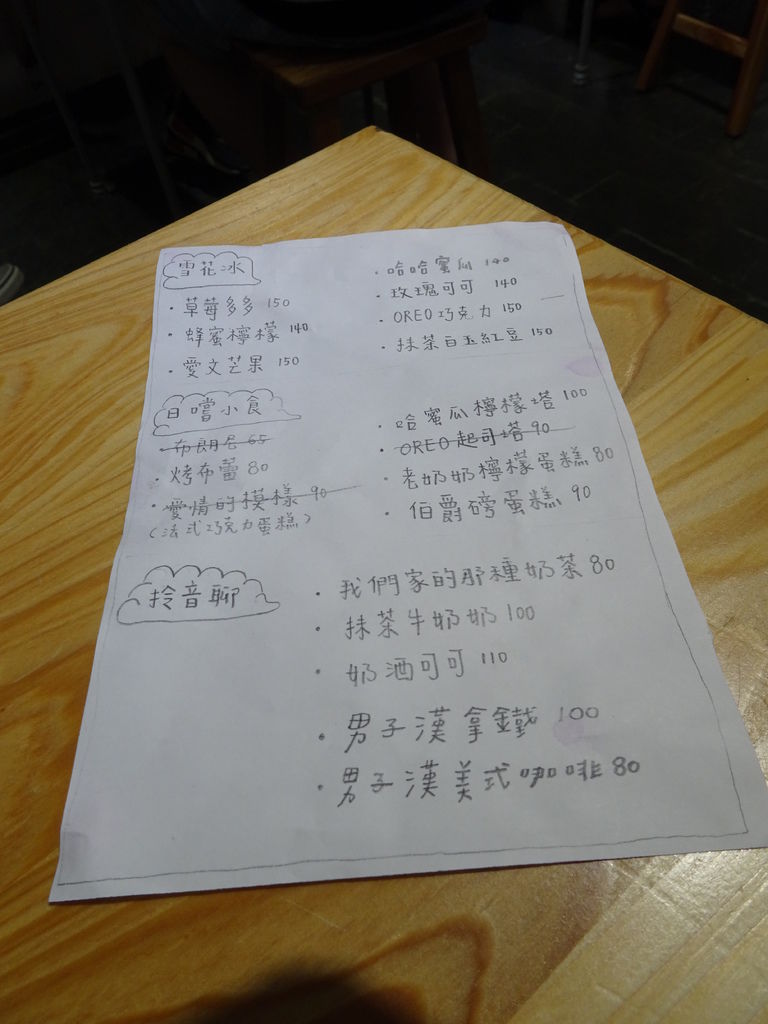 雪花冰
・草莓多多 150
・蜂蜜檸檬 140
・愛文芒果 150
・哈哈蜜瓜 140
・玫瑰可可 140
・OREO巧克力 150
・抹茶白玉紅豆 150
日嚐小食
・布朗尼 65
・烤布蕾 80
・愛情的模樣 90
(法式巧克力蛋糕)
・哈蜜瓜檸檬塔 100
・OREO起司塔 90
・老奶奶檸檬蛋糕 80
・伯爵磅蛋糕 90
拎音聊
・我們家的那種奶茶 80
・抹茶牛奶奶 100
・奶酒可可 110
・男子漢拿鐵 100
・男子漢美式咖啡 80